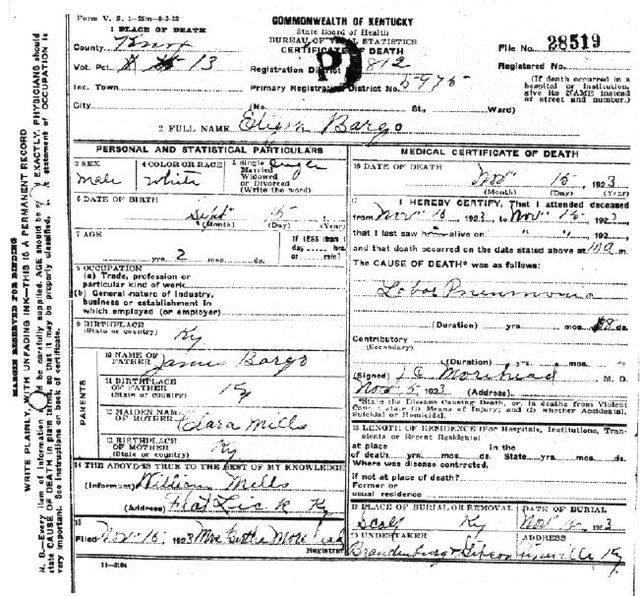 Form V. S. 1—25m—8-2-22
COMMONWEALTH OF KENTUCKY
State Board of Health
BUREAU OF VITAL STATISTICS
CERTIFICATE OF DEATH
1 PLACE OF DEATH
County Knox
Vot. Pct. 13
Inc. Town
City
Registration District 812
Primary Registration District No. 5975
(No. St., Ward)
File No. 28519
Registered No.
(If death occurred in a
hospital or institution,
give its NAME instead
of street and number.)
2 FULL NAME Bargo
PERSONAL AND STATISTICAL PARTICULARS
3 SEX
male
4 COLOR OR RACE
White
5 Single
Married
Widowed
or Divorced
(Write the word)
Single
6 DATE OF BIRTH
Sept 15
(Month) (Day) (Year)
7 AGE
yrs. 2 mos. ds.
IF LESS than
day hrs.
or min.
8 OCCUPATION
(a) Trade, profession or
particular kind of work
(b) General nature of industry,
business or establishment in
which employed (or employer)
9 BIRTHPLACE
(State or country) Ky
PARENTS
10 NAME OF
FATHER James Bargo
11 BIRTHPLACE
OF FATHER
(State or country) Ky
12 MAIDEN NAME
OF MOTHER Clara Mills
13 BIRTHPLACE
OF MOTHER
(State or country) Ky
14 THE ABOVE IS TRUE TO THE BEST OF MY KNOWLEDGE
(Informant) William Mills
(Address) Flat Lick Ky
15
Filed Nov 15, 1923 Mrs
Registrar
11—3184
MEDICAL CERTIFICATE OF DEATH
16 DATE OF DEATH
Nov 15, 1923
(Month) (Day) (Year)
17 I HEREBY CERTIFY, That I attended deceased
from Nov 15 1923 to Nov 15, 1923
that I last saw alive on " "
and that death occurred on the date stated above at m.
The CAUSE OF DEATH* was as follows:
Lobar Pneumonia
(Duration) yrs. mos. ds.
Contributory
(Secondary)
(Duration) yrs. mos. ds.
(Signed) Morehead M. D.
Nov 15, 1923 (Address)
*State the Disease Causing Death, or, in deaths from Violent
Causes state (1) Means of Injury; and (2) whether Accidental,
Suicidal or Homicidal.
18 LENGTH OF RESIDENCE (For Hospitals, Institutions, Tran-
sients or Recent Residents)
At place In the
of death yrs. mos. ds. State yrs. mos. ds.
Where was disease contracted,
if not at place of death?
Former or
usual residence
19 PLACE OF BURIAL OR REMOVAL
Scalf Ky
DATE OF BURIAL
Nov 1923
20 UNDERTAKER
Brandenburg & Gibson
ADDRESS
Ky
MARGIN RESERVED FOR BINDING
WRITE PLAINLY, WITH UNFADING INK—THIS IS A PERMANENT RECORD